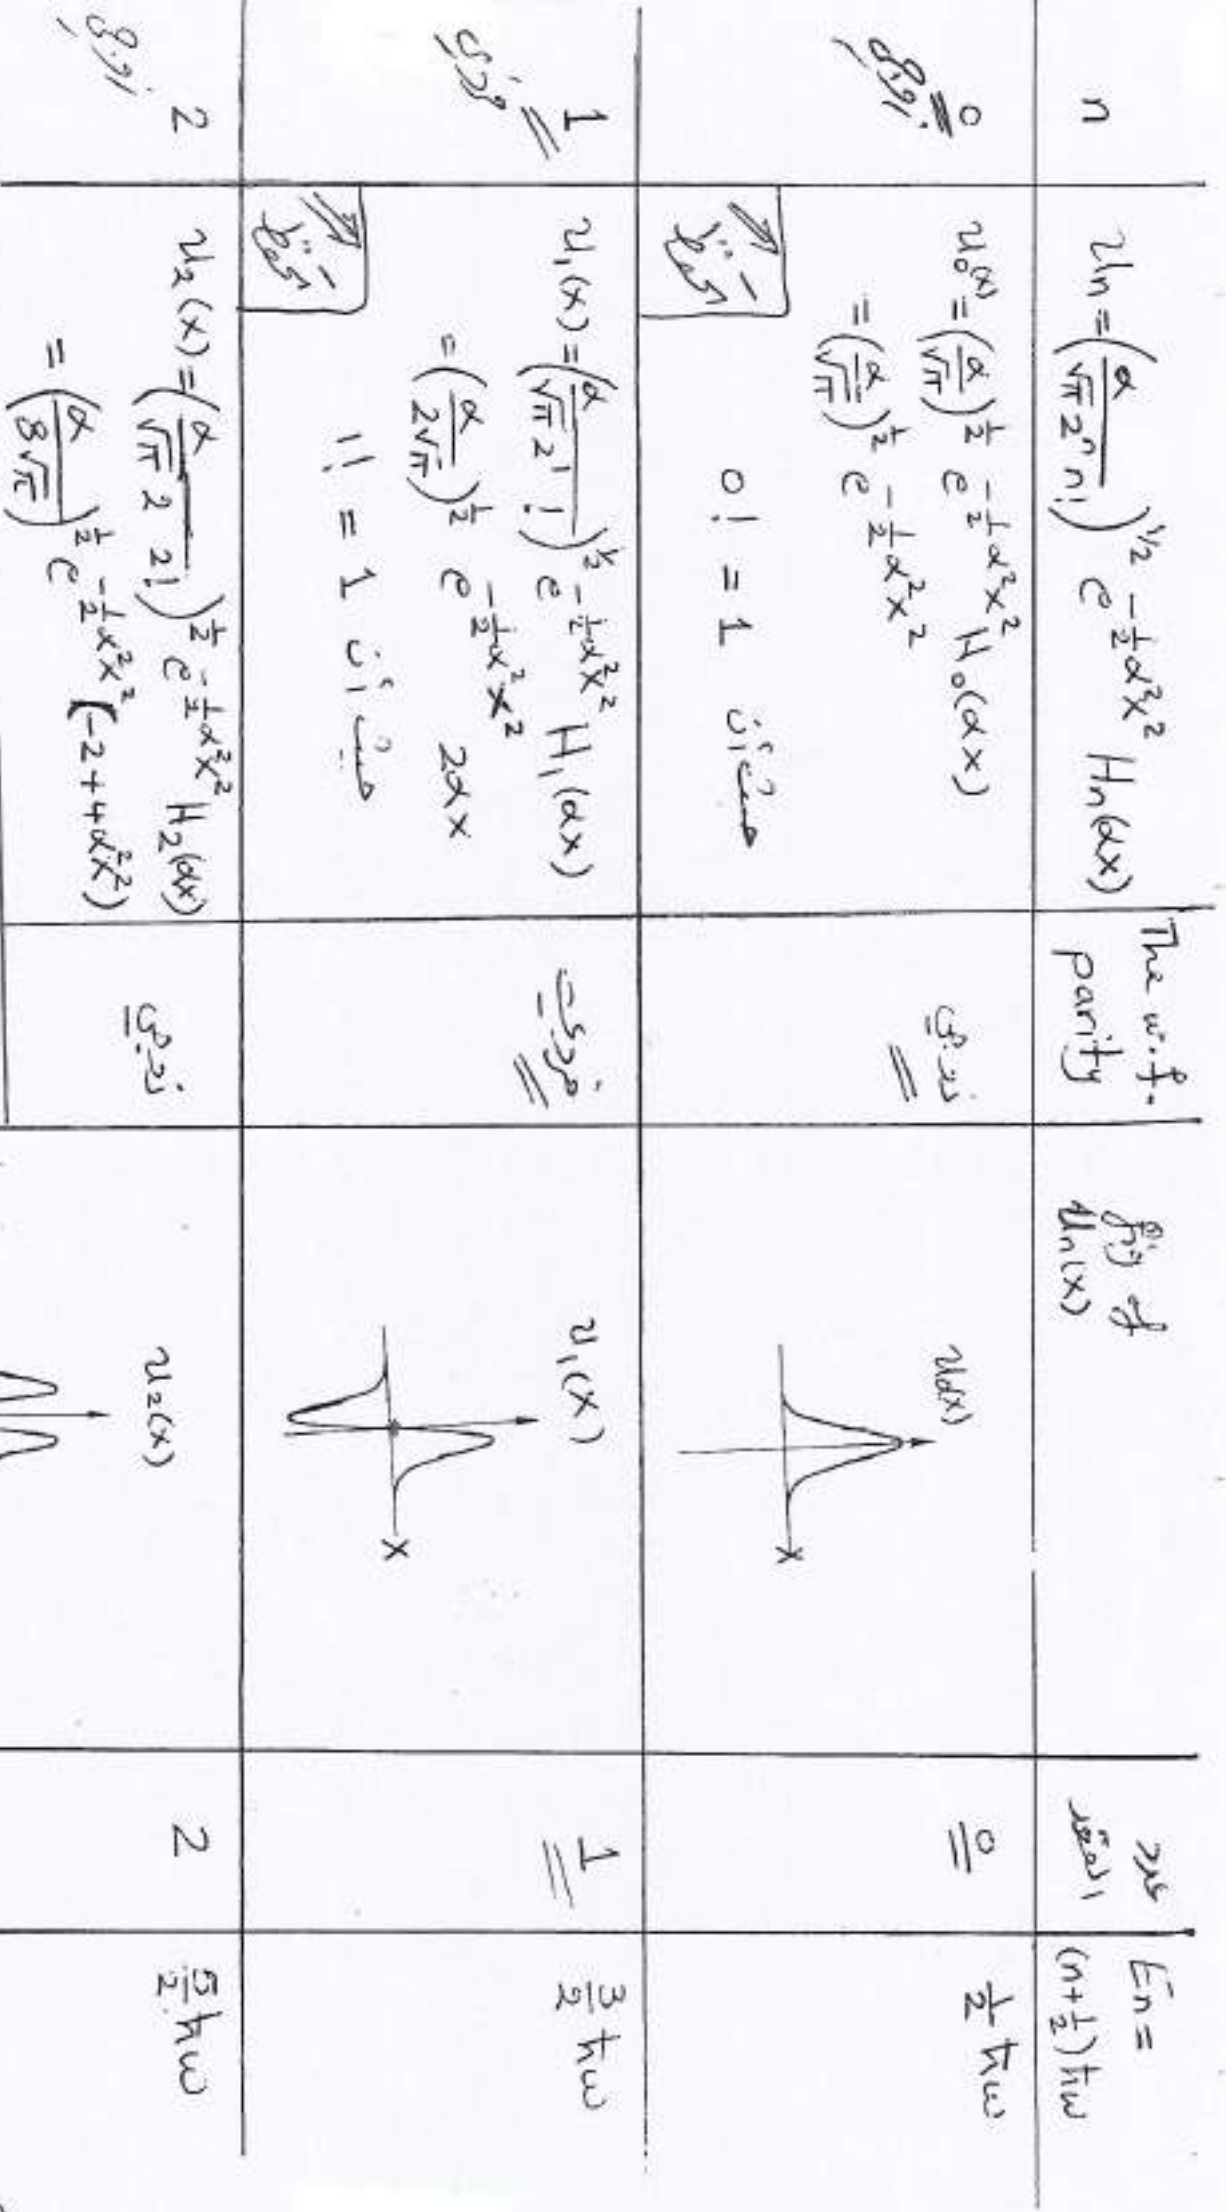 n
Un = (α / √π 2ⁿ n!)^1/2 e^-½α²x² Hn(αx)
The w.f. parity
fig of Un(x)
عدد العقد
En = (n+½)ħω
0
زوجي
U₀(x) = (α/√π)^½ e^-½α²x² H₀(αx)
= (α/√π)^½ e^-½α²x²
0! = 1 حيث أن
زوجي
U₀(x)
x
0
½ ħω
1
فردي
U₁(x) = (α / √π 2¹ !)^½ e^-½α²x² H₁(αx)
= (α / 2√π)^½ e^-½α²x² 2αx
1! = 1 حيث أن
فردي
U₁(x)
x
1
3/2 ħω
2
زوجي
U₂(x) = (α / √π 2 2!)^½ e^-½α²x² H₂(αx)
= (α / 8√π)^½ e^-½α²x² (-2+4α²x²)
زوجي
U₂(x)
2
5/2 ħω